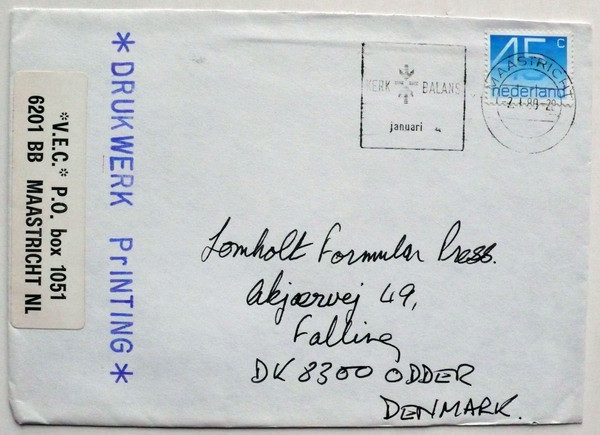 *V.E.C.* P.O. box 1051
6201 BB MAASTRICHT NL
*DRUKWERK PrINTING*
KERK BALANS
januari
45 c
nederland
MAASTRICHT
Lomholt Formular Press.
Akjærvej 49,
Falling
DK 8300 ODDER
DENMARK.